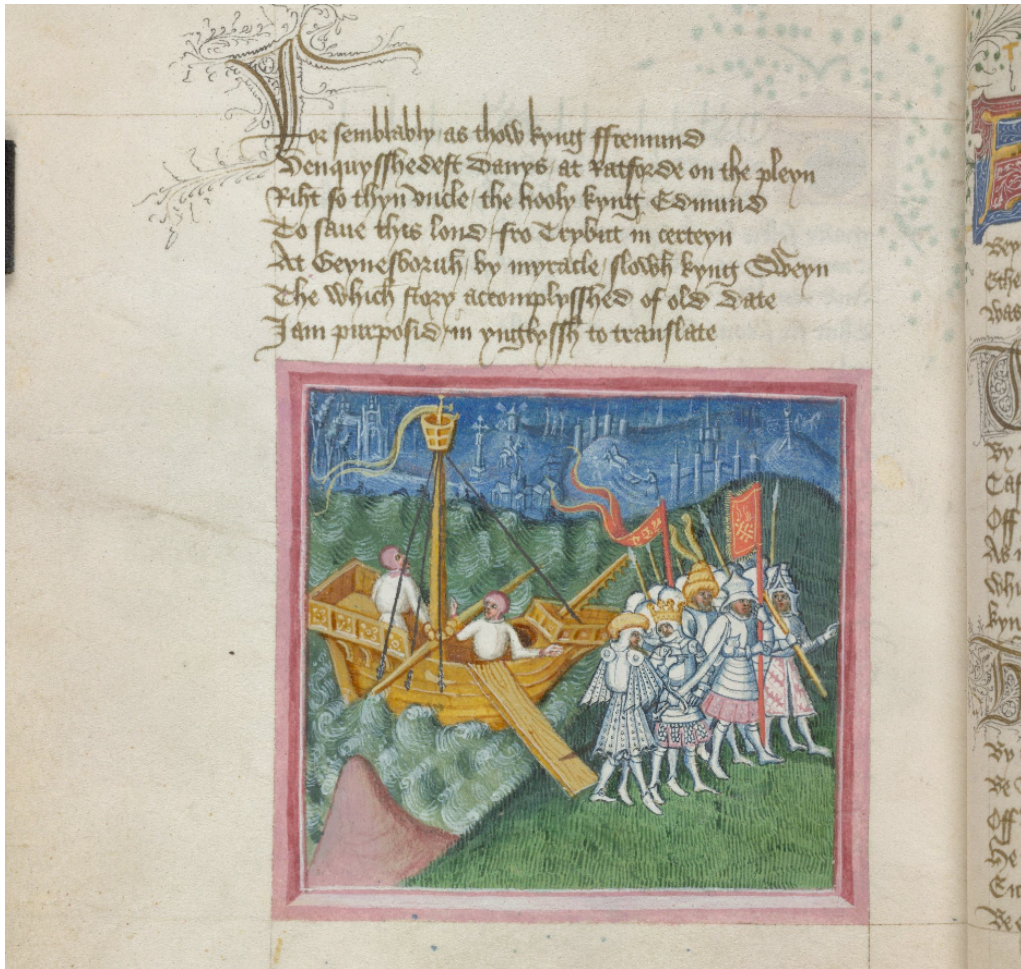 For semblably / as thow kyng ffremund
Venquysshedest Danys / at Ratforde on the pleyn
Riht so thyn vncle / the hooly kyng Edmund
To saue this lond / fro Trybut in certeyn
At Geynesboruh / by myracle / slowh kyng Sweyn
The which story accomplysshed of old date
I am purposid / in ynglyssh to translate